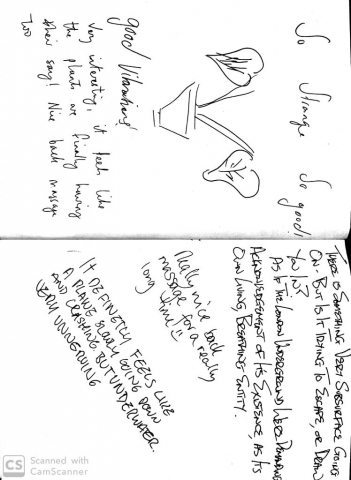 So Strange So good!
good Vibrations!
Very interesting, it feels like
the plants are finally having
their say! Nice back massage
too
THERE IS SOMETHING VERY SUBSURFACE GOING
ON. BUT IS IT TRYING TO ESCAPE, OR DRAW
YOU IN?
AS IF THE LONDON UNDERGROUND WERE DEMANDING
ACKNOWLEDGEMENT OF ITS EXISTENCE, AS ITS
OWN LIVING, BREATHING ENTITY.
Really nice back
massage for a really
long time!!
IT DEFINETLY FEELS LIKE
A PLANE SLOWLY GOING DOWN
AND CRASHING. BUT UNDERWATER.
VERY UNNERVING
CS Scanned with
CamScanner